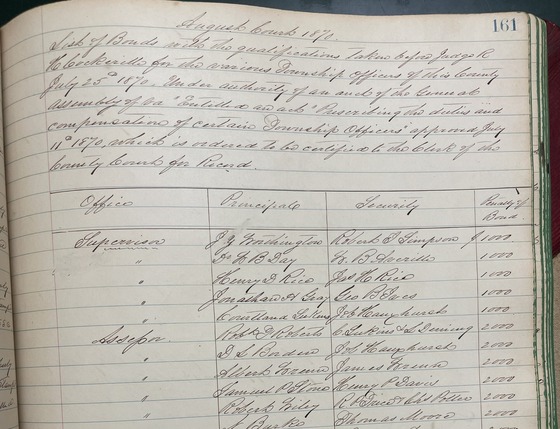 August Court 1870.
161
List of Bonds with the qualifications taken before Judge R
H Cockerille for the various Township Officers of this County
July 25th 1870. Under authority of an act of the General
assembly of Va " Entitled an act "Prescribing the duties and
compensation of certain Township Officers" approved July
11th 1870, which is ordered to be certified to the Clerk of the
County Court for Record.
Office Principals Security Penalty of Bond
Supervisor J Y Worthington Robert T Simpson $ 1000
" Dr W B Day 1000
" Henry D Rice Jas H Rice 1000
" Jonathan A Gray Geo B Ives 1000
" Courtland Lukens Job Hawxhurst 1000
Assessor Robt D Roberts C Lukens & L Deming 2000
" D S Borden Job Hawxhurst 2000
" Albert Wrenn James Wrenn 2000
" Samuel P Stone Henry P Davis 2000
" Robert Wiley R A Price & Chs Potter 2000
" Burke Thomas Moore 2000